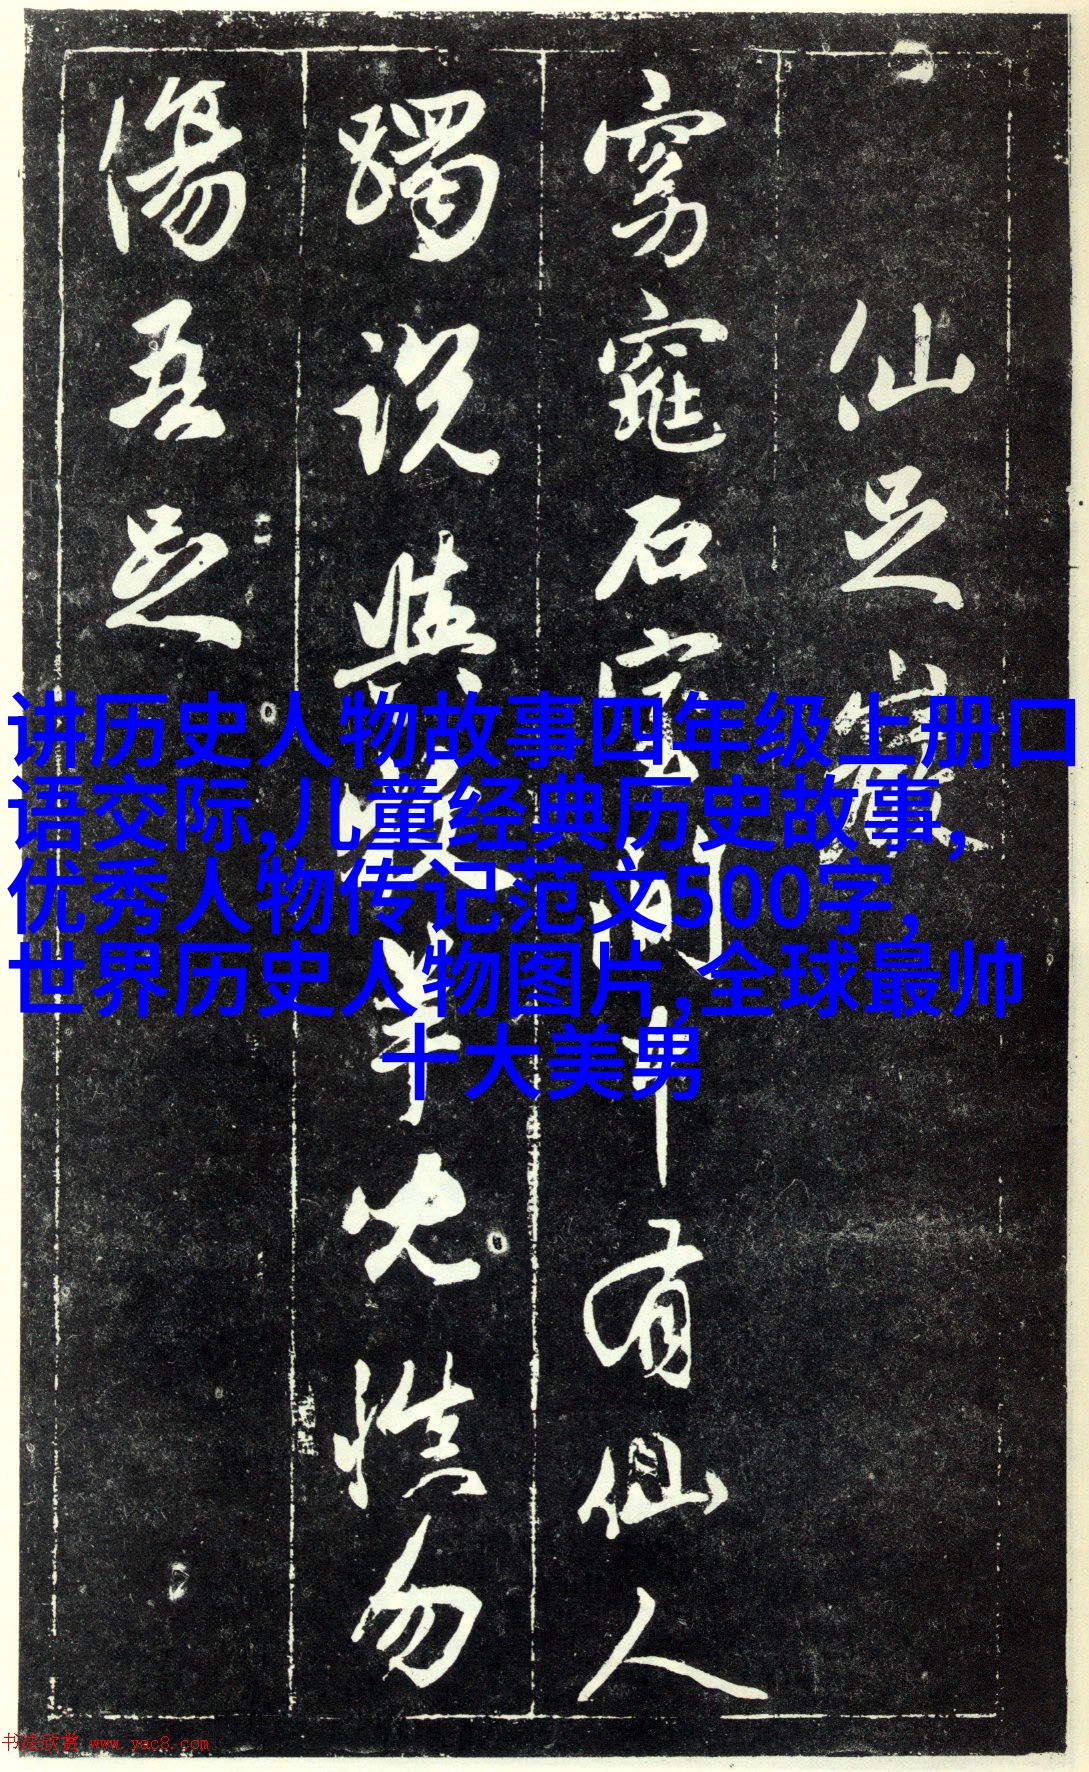 仙足巖
窈窕石室間中有仙人
躅說與牧羊兒慎勿
傷吾足
讲历史人物故事四年级上册口
语交际,儿童经典历史故事,
优秀人物传记范文500字,
世界历史人物图片,全球最帅
十大美男
书法欣赏 www.yac8.com